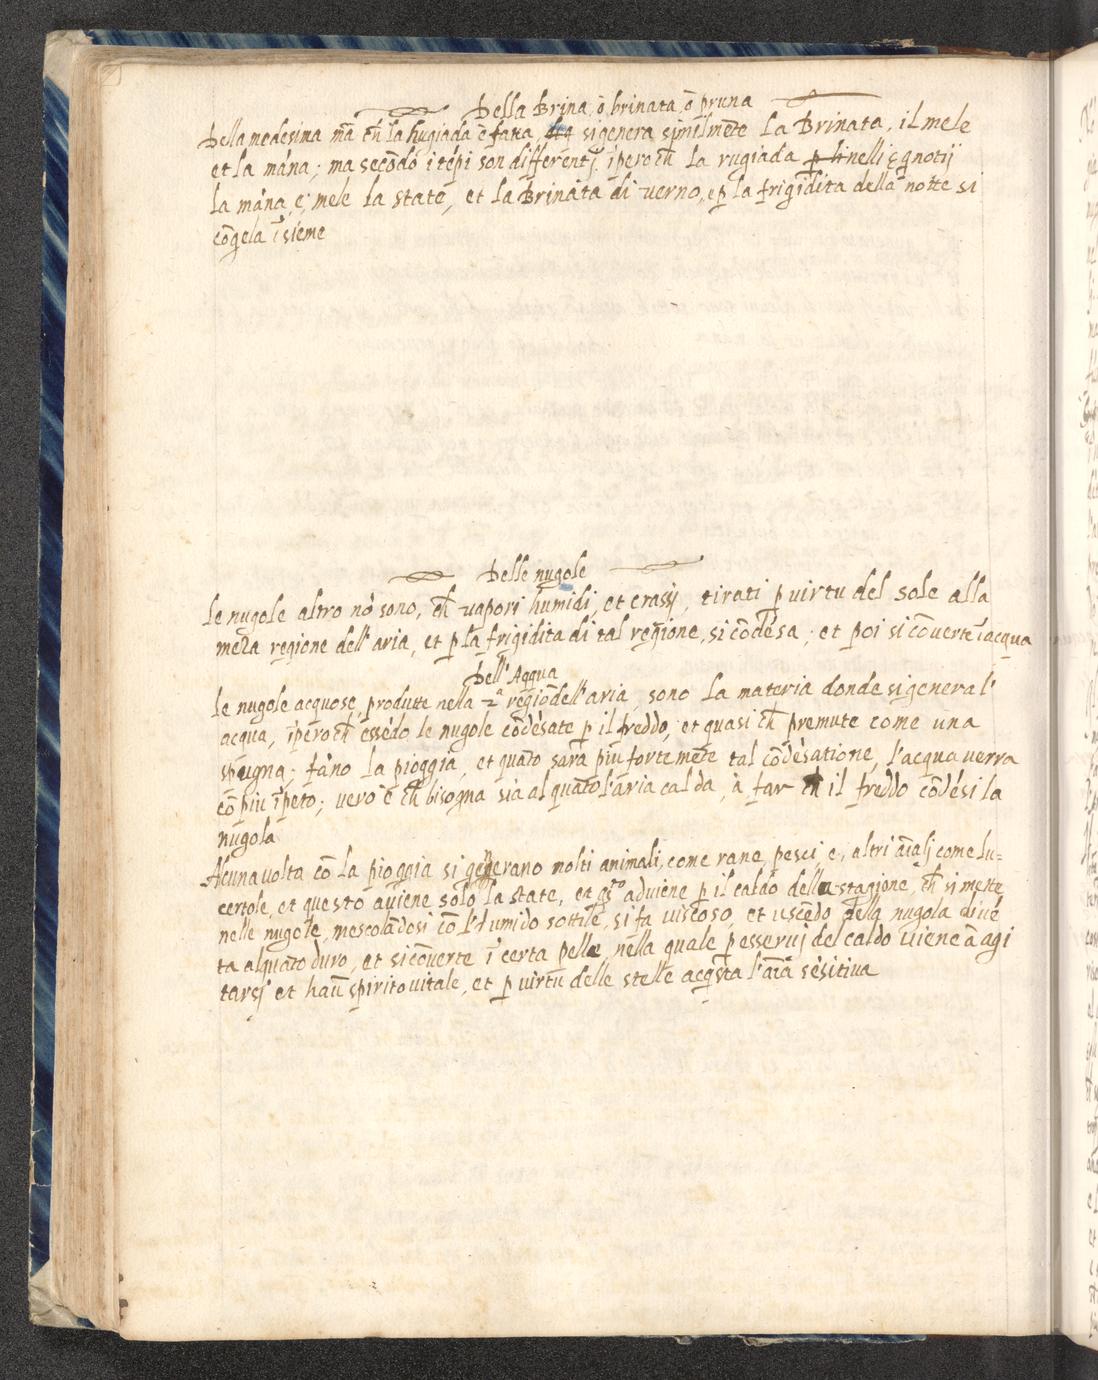 Della Brina, ò brinata, ò pruna
Della medesima mã ch̃ la hugiada è fatta, si genera similmẽte la Brinata, il mele
et la mãna; ma secõdo i tẽpi son differentj. ĩperoch̃ la rugiada nelli
la mãna, e, mele la state, et la Brinata di verno, e ꝑ la frigidita della notte si
cõgela ĩsieme
Delle nugole
Le nugole altro nõ sono, ch̃ vapori humidi, et crassj, tirati ꝑ uirtu del sole alla
meza regione dell'aria, et ꝑ la frigidita di tal regione, si cõdẽsa; et poi si cõuerte ĩ acqua
Dell'Aqqua
Le nugole acquose, produtte nella 2ª region dell'aria, sono la materia donde si genera l'
acqua, ĩperoch̃ essẽdo le nugole cõdẽsate ꝑ il freddo, et quasi ch̃ premute come una
spugna; fãno la pioggia, et quãto sara piu fortemẽte tal cõdẽsatione, l'acqua uerra
cõ piu ĩpeto; uero è ch̃ bisogna sia al quãto l'aria calda, à far ch̃ il freddo cõdẽsi la
nugola
Alcuna uolta cõ la pioggia si generano molti animali, come rane, pesci, e, altri aĩalj come lu=
certole, et questo auiene solo la state, et q̃sto aduiene ꝑ il caldo della stagione, ch̃ si mette
nelle nugole, mescolãdosi cõ l'humido sottile, si fa uiscoso, et uscẽdo della nugola diuẽ
ta alquãto duro, et si cõuerte ĩ certa pelle, nella quale ꝑ esseruj del caldo uiene à agi
tarsj et hau spirito uitale, et ꝑ uirtu delle stelle acq̃sta l'aĩa sẽsitiua